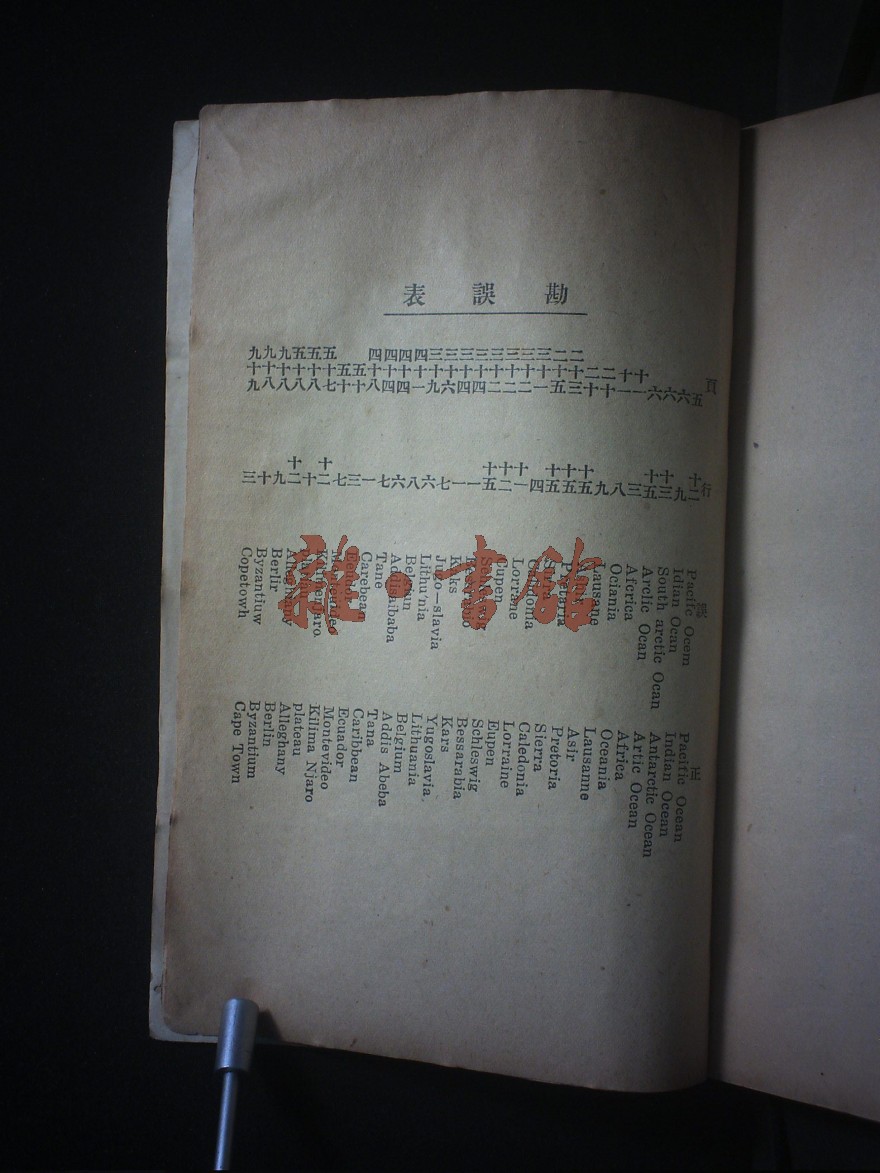 勘誤表
頁 行 誤 正
五 十二 Pacifc Ocem Pacific Ocean
六 九 Idian Ocan Indian Ocean
六 十三 South arctic Ocan Antarctic Ocean
六 十五 Arclic Ocan Artic Ocean
十一 三 Aferica Africa
十一 八 Ociania Oceania
二十 九 Lausane Lausanne
二十 十五 Asir
二十三 十五 Pretoria
二十五 十五 Sierra
三十一 四 Caledonia
三十二 十一 Lorrane Lorraine
三十二 十二 Cupen Eupen
三十二 十五 Schleswig
三十四 一 Bessarabia
三十四 一 Kaks Kars
三十六 七 Jugo—slavia Yugoslavia
三十九 六 Lithu'nia Lithuania
四十一 八 Belgiun Belgium
四十四 六 Addisaibaba Addis Abeba
四十四 七 Tane Tana
四十八 一 Carebean Caribbean
五十 三 Ecuador
五十 七 Montevideo
五十七 十二 Kilima Njaro
五十八 十 plateau
五十八 十二 Alleghany
九十八 九 Berlir Berlin
九十八 十 Byzantiuw Byzantium
九十九 三 Copetowh Cape Town